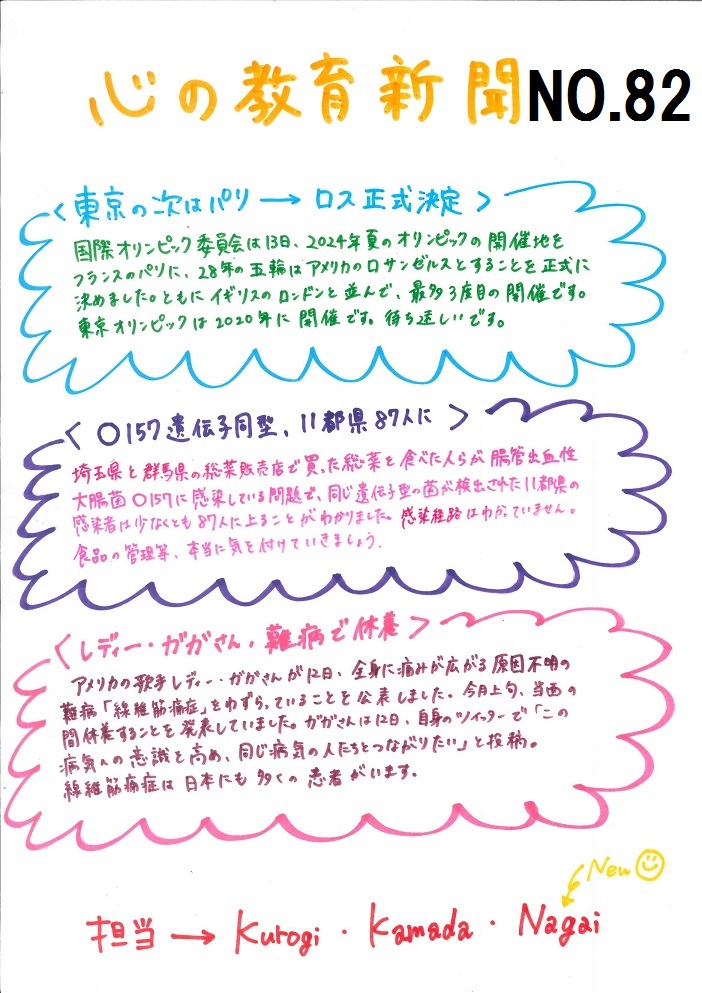 心の教育新聞NO.82
<東京の次はパリ→ロス正式決定>
国際オリンピック委員会は13日、2024年夏のオリンピックの開催地を
フランスのパリに、28年の五輪はアメリカのロサンゼルスとすることを正式に
決めました。ともにイギリスのロンドンと並んで、最多3度目の開催です。
東京オリンピックは2020年に開催です。待ち遠しいです。
<O157遺伝子同型、11都県87人に>
埼玉県と群馬県の総菜販売店で買った総菜を食べた人らが腸管出血性
大腸菌O157に感染している問題で、同じ遺伝子型の菌が検出された11都県の
感染者は少なくとも87人に上ることがわかりました。感染経路はわかっていません。
食品の管理等、本当に気を付けていきましょう.
<レディー・ガガさん・難病で休養>
アメリカの歌手レディー・ガガさんが12日、全身に痛みが広がる原因不明の
難病「線維筋痛症」をわずらっていることを公表しました。今月上旬、当面の
間休養することを発表していました。ガガさんは12日、自身のツイッターで「この
病気への意識を高め、同じ病気の人たちとつながりたい」と投稿。
線維筋痛症は日本にも多くの患者がいます。
New
担当→Kurogi・Kamada・Nagai